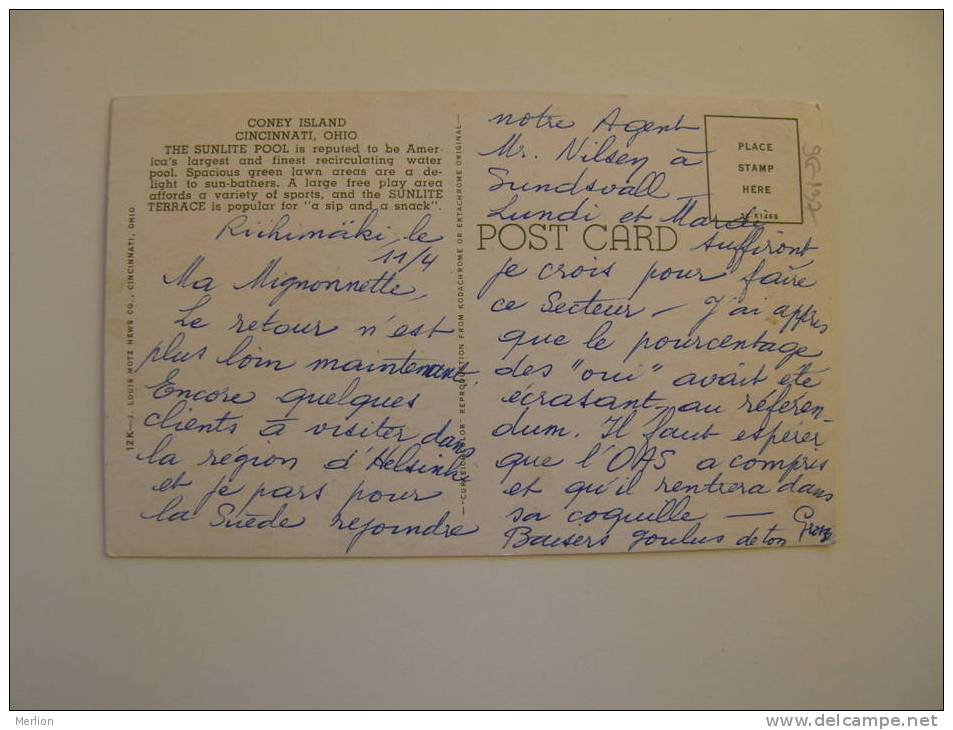 CONEY ISLAND
CINCINNATI, OHIO
THE SUNLITE POOL is reputed to be Amer-
ica's largest and finest recirculating water
pool. Spacious green lawn areas are a de-
light to sun-bathers. A large free play area
affords a variety of sports, and the SUNLITE
TERRACE is popular for "a sip and a snack".
Riihimäki le
11/4
Ma Mignonnette,
Le retour n'est
plus loin maintenant.
Encore quelques
clients à visiter dans
la région d'Helsinki
et je pars pour
la Suède rejoindre
12K—J. LOUIS MOTZ NEWS CO., CINCINNATI, OHIO
REPRODUCTION FROM KODACHROME OR EKTACHROME ORIGINAL
notre Agent
Mr. Nilsen à
Sundsvall
Lundi et Mardi
suffiront
je crois pour faire
ce Secteur — J'ai appris
que le pourcentage
des "oui" avait été
écrasant au référen-
dum. Il faut espérer
que l'OAS a compris
et qu'il rentrera dans
sa coquille —
Baisers goulus de ton
PLACE
STAMP
HERE
POST CARD
Merlion
www.delcampe.net